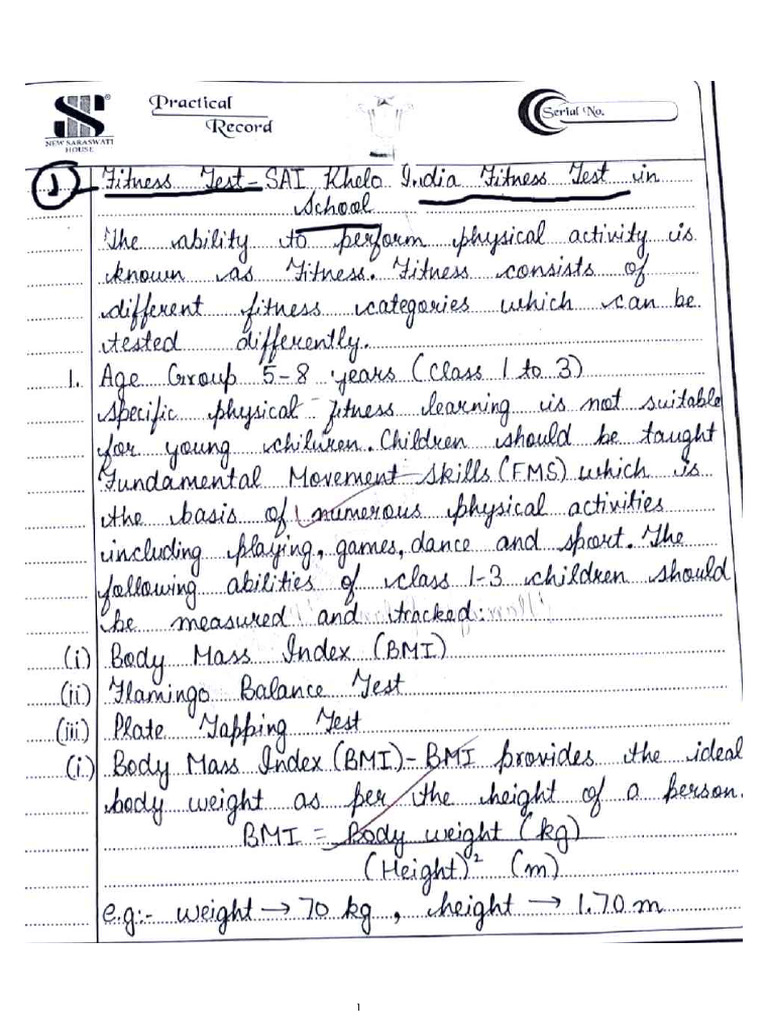 Practical
Record
Serial No.
NEW SARASWATI
HOUSE
1 Fitness Test - SAI Khelo India Fitness Test in
School
The ability to perform physical activity is
known as Fitness. Fitness consists of
different fitness categories which can be
tested differently.
1. Age Group 5-8 years (Class 1 to 3)
specific physical fitness learning is not suitable
for young children. Children should be taught
Fundamental Movement Skills (FMS) which is
the basis of numerous physical activities
including playing, games, dance and sport. The
following abilities of class 1-3 children should
be measured and tracked:
(i) Body Mass Index (BMI)
(ii) Flamingo Balance Test
(iii) Plate Tapping Test
(i.) Body Mass Index (BMI) - BMI provides the ideal
body weight as per the height of a person.
BMI = Body weight (kg)
(Height)² (m)
e.g:- weight → 70 kg, height → 1.70 m
1